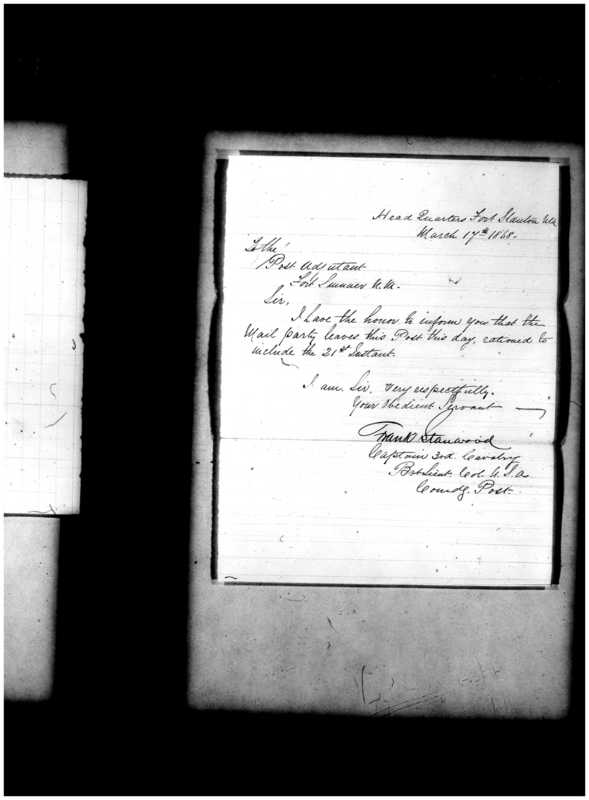 Head Quarters Fort Stanton N.M.
March 17th 1868.
To the
Post Adjutant
Fort Sumner N.M.
Sir,
I have the honor to inform you that the
Mail party leaves this Post this day, rationed to
include the 21st Instant.
I am Sir, Very respectfully.
Your Obedient Servant
Frank Stanwood
Captain 3rd Cavalry
Bvt Lieut. Col U.S.A.
Comdg. Post.